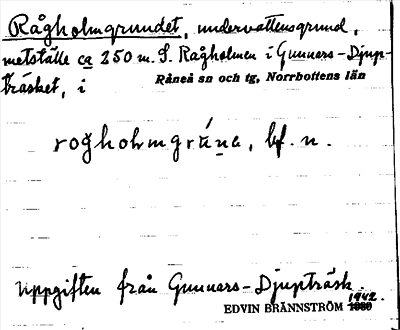 Rågholmgrundet, undervattensgrund,
metställe ca 250 m. S. Rågholmen i Gunnars-Djup-
träsket, i Råneå sn och tg, Norrbottens län
rogholmgrúne, bf. n.
Uppgiften från Gunnars-Djupträsk.
EDVIN BRÄNNSTRÖM 1942.